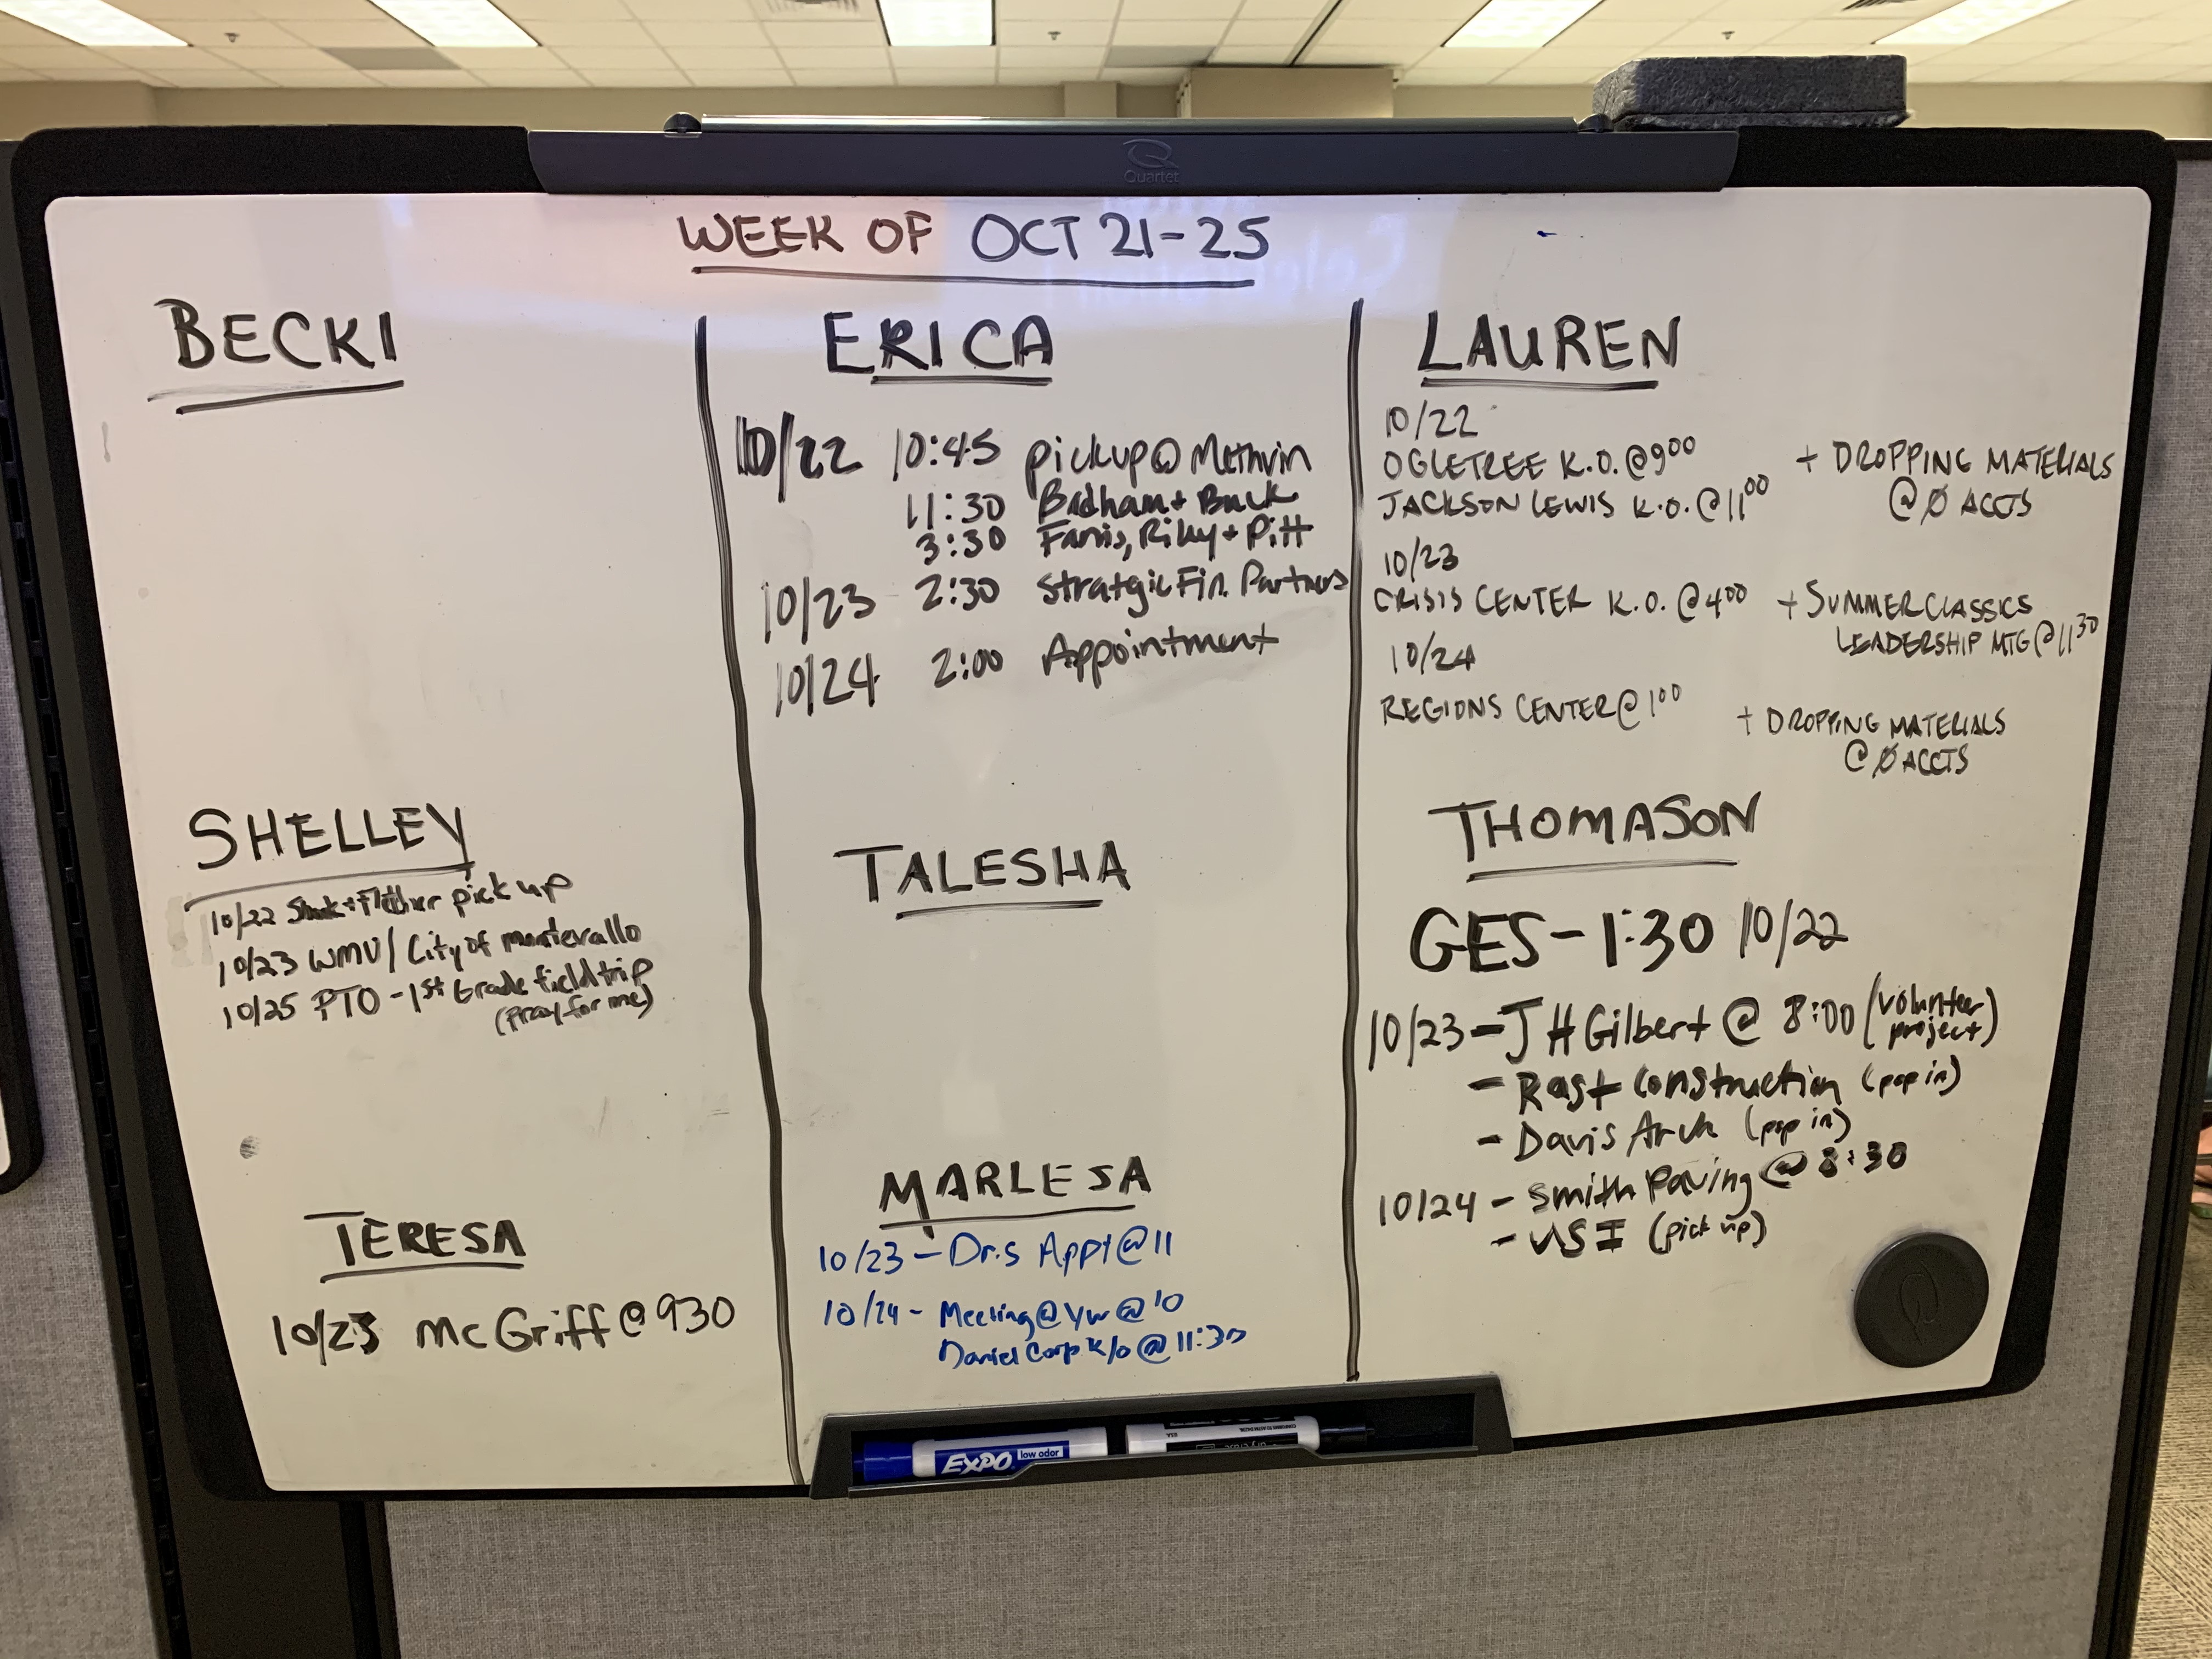 Quartet
WEEK OF OCT 21-25
BECKI
SHELLEY
10/22 pick up
10/23 WMU/ City of montevallo
10/25 PTO - 1st Grade field trip
(pray for me)
TERESA
10/23 McGriff @ 930
ERICA
10/22 10:45 pickup @ Methvin
11:30 Badham + Buck
3:30 Farris, Riley + Pitt
10/23 2:30 Stratgic Fin. Partners
10/24 2:00 Appointment
TALESHA
MARLESA
10/23 - Dr.s Appt @ 11
10/24 - Meeting @ YW @ 10
Daniel Corp k/o @ 11:30
LAUREN
10/22
OGLETREE K.O. @ 9:00 + DROPPING MATERIALS
JACKSON LEWIS K.O. @ 11:00 @ Ø ACCTS
10/23
CRISIS CENTER K.O. @ 4:00 + SUMMER CLASSICS
LEADERSHIP MTG @ 11:30
10/24
REGIONS CENTER @ 1:00 + DROPPING MATERIALS
@ Ø ACCTS
THOMASON
GES - 1:30 10/22
10/23 - JH Gilbert @ 8:00 (volunteer project)
- Rast Construction (pop in)
- Davis Arch (pop in)
10/24 - Smith Paving @ 8:30
- USI (pick up)
EXPO low odor